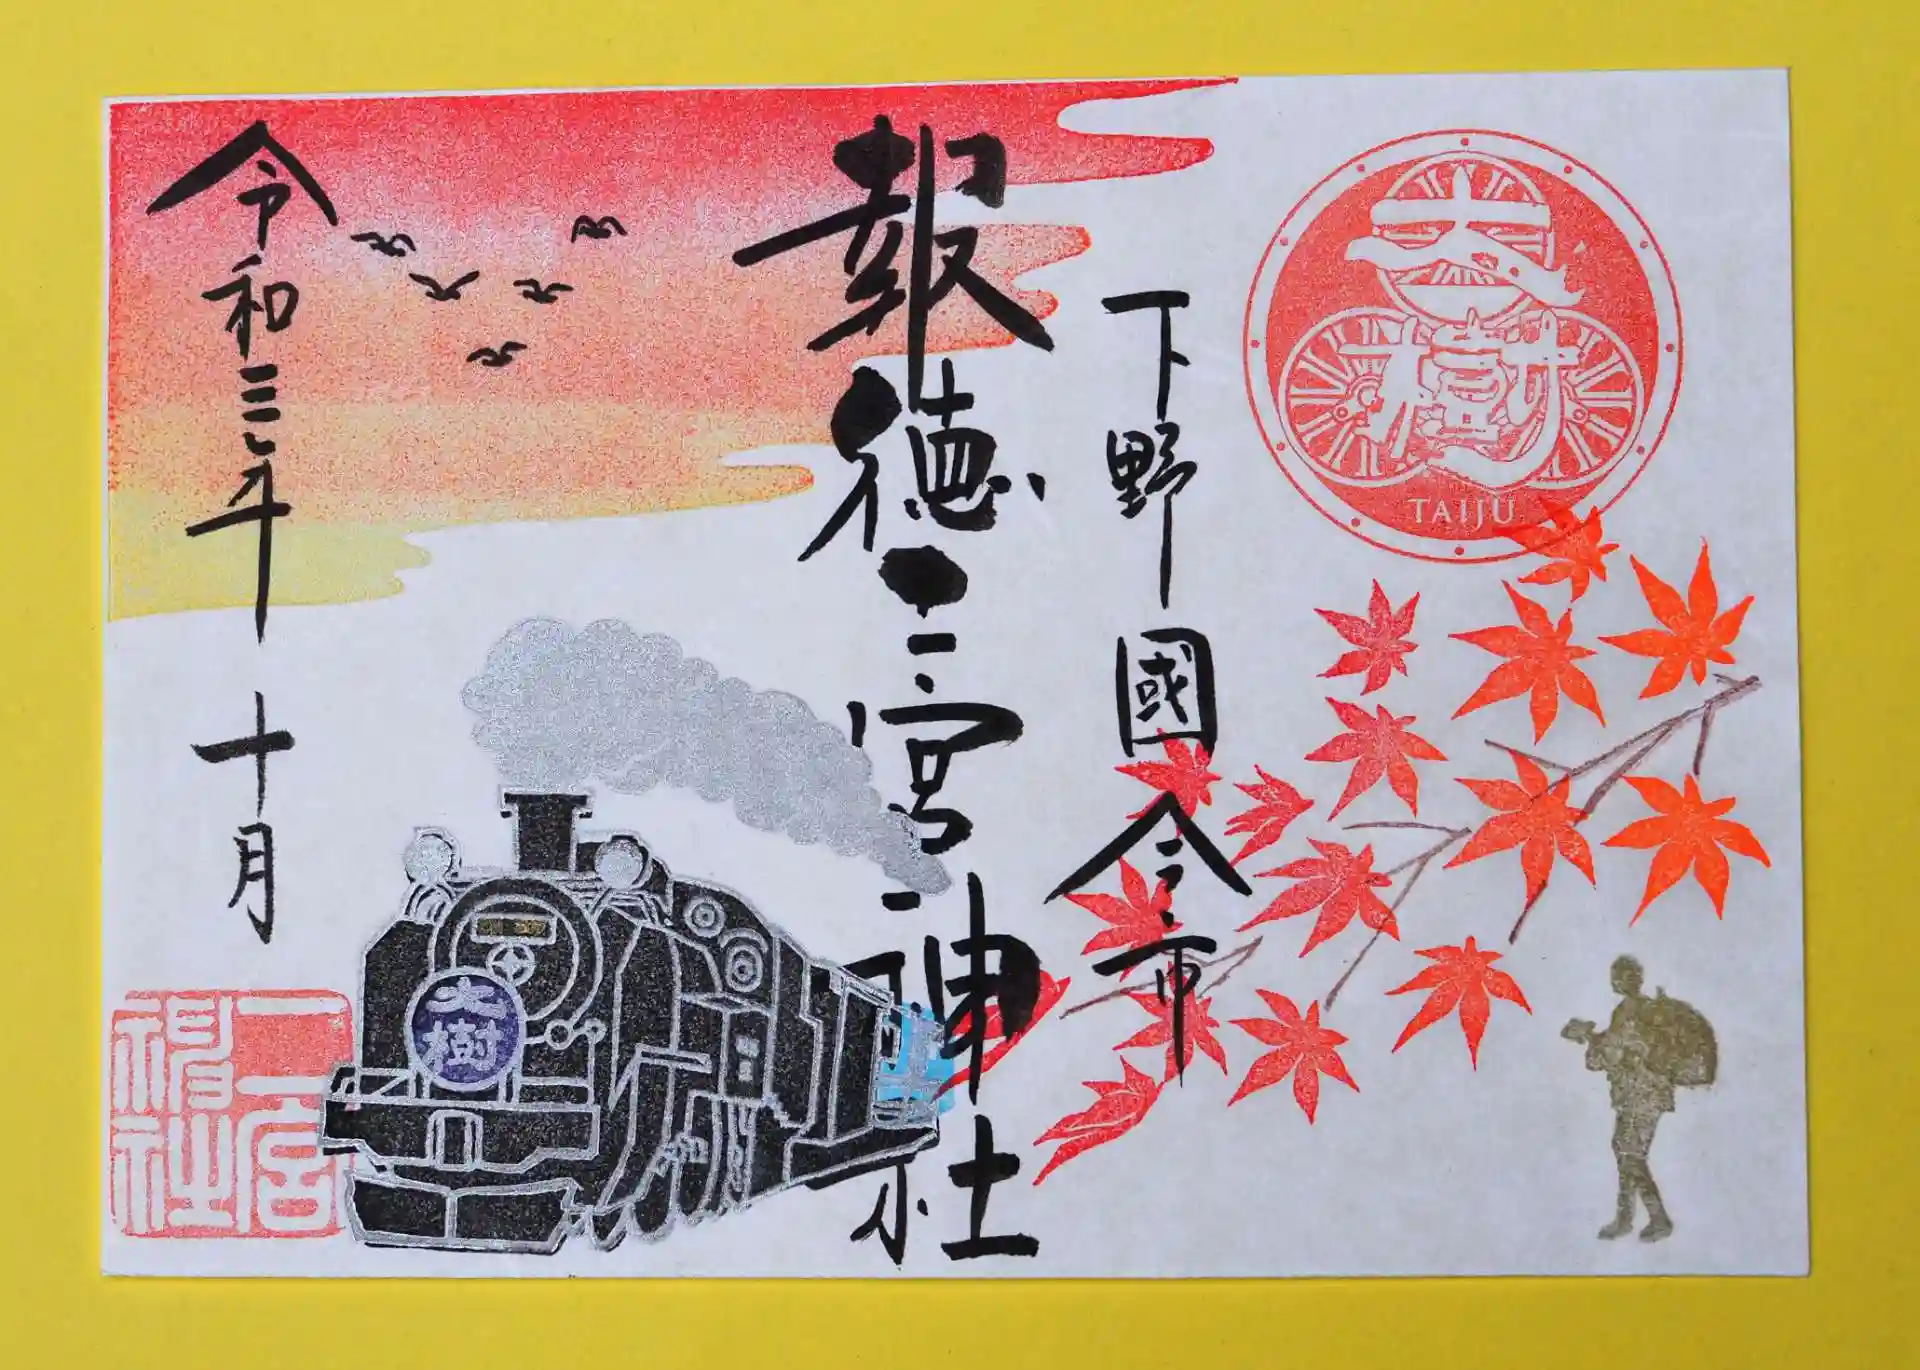 大樹
TAIJU
下野國今市
報徳二宮神社
令和三年十月
大樹
二宮
神社